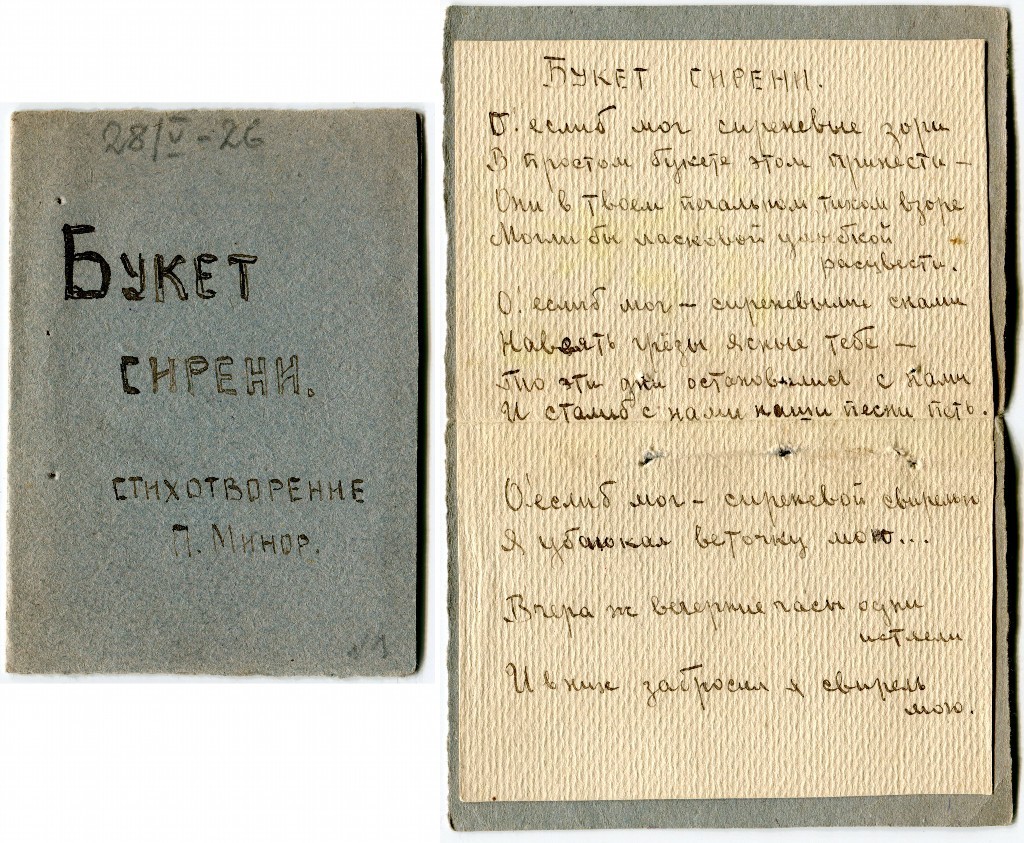 28/V-26
Букет
сирени.
стихотворение
П. Минор.
№1
Букет сирени.
О! еслиб мог сиреневые зори
В простом букете этом принести —
Они в твоем печальном тихом взоре
Могли бы ласковой улыбкой
расцвести.
О! еслиб мог — сиреневыми снами
Навеять грёзы ясные тебе —
что эти дни остановились с нами
И сталиб с нами наши песни петь.
О! еслиб мог — сиреневой свирелью
Я убаюкал веточку мою...
Вчера ж вечерние часы одни
истлели
И в них забросил я свирель
мою.